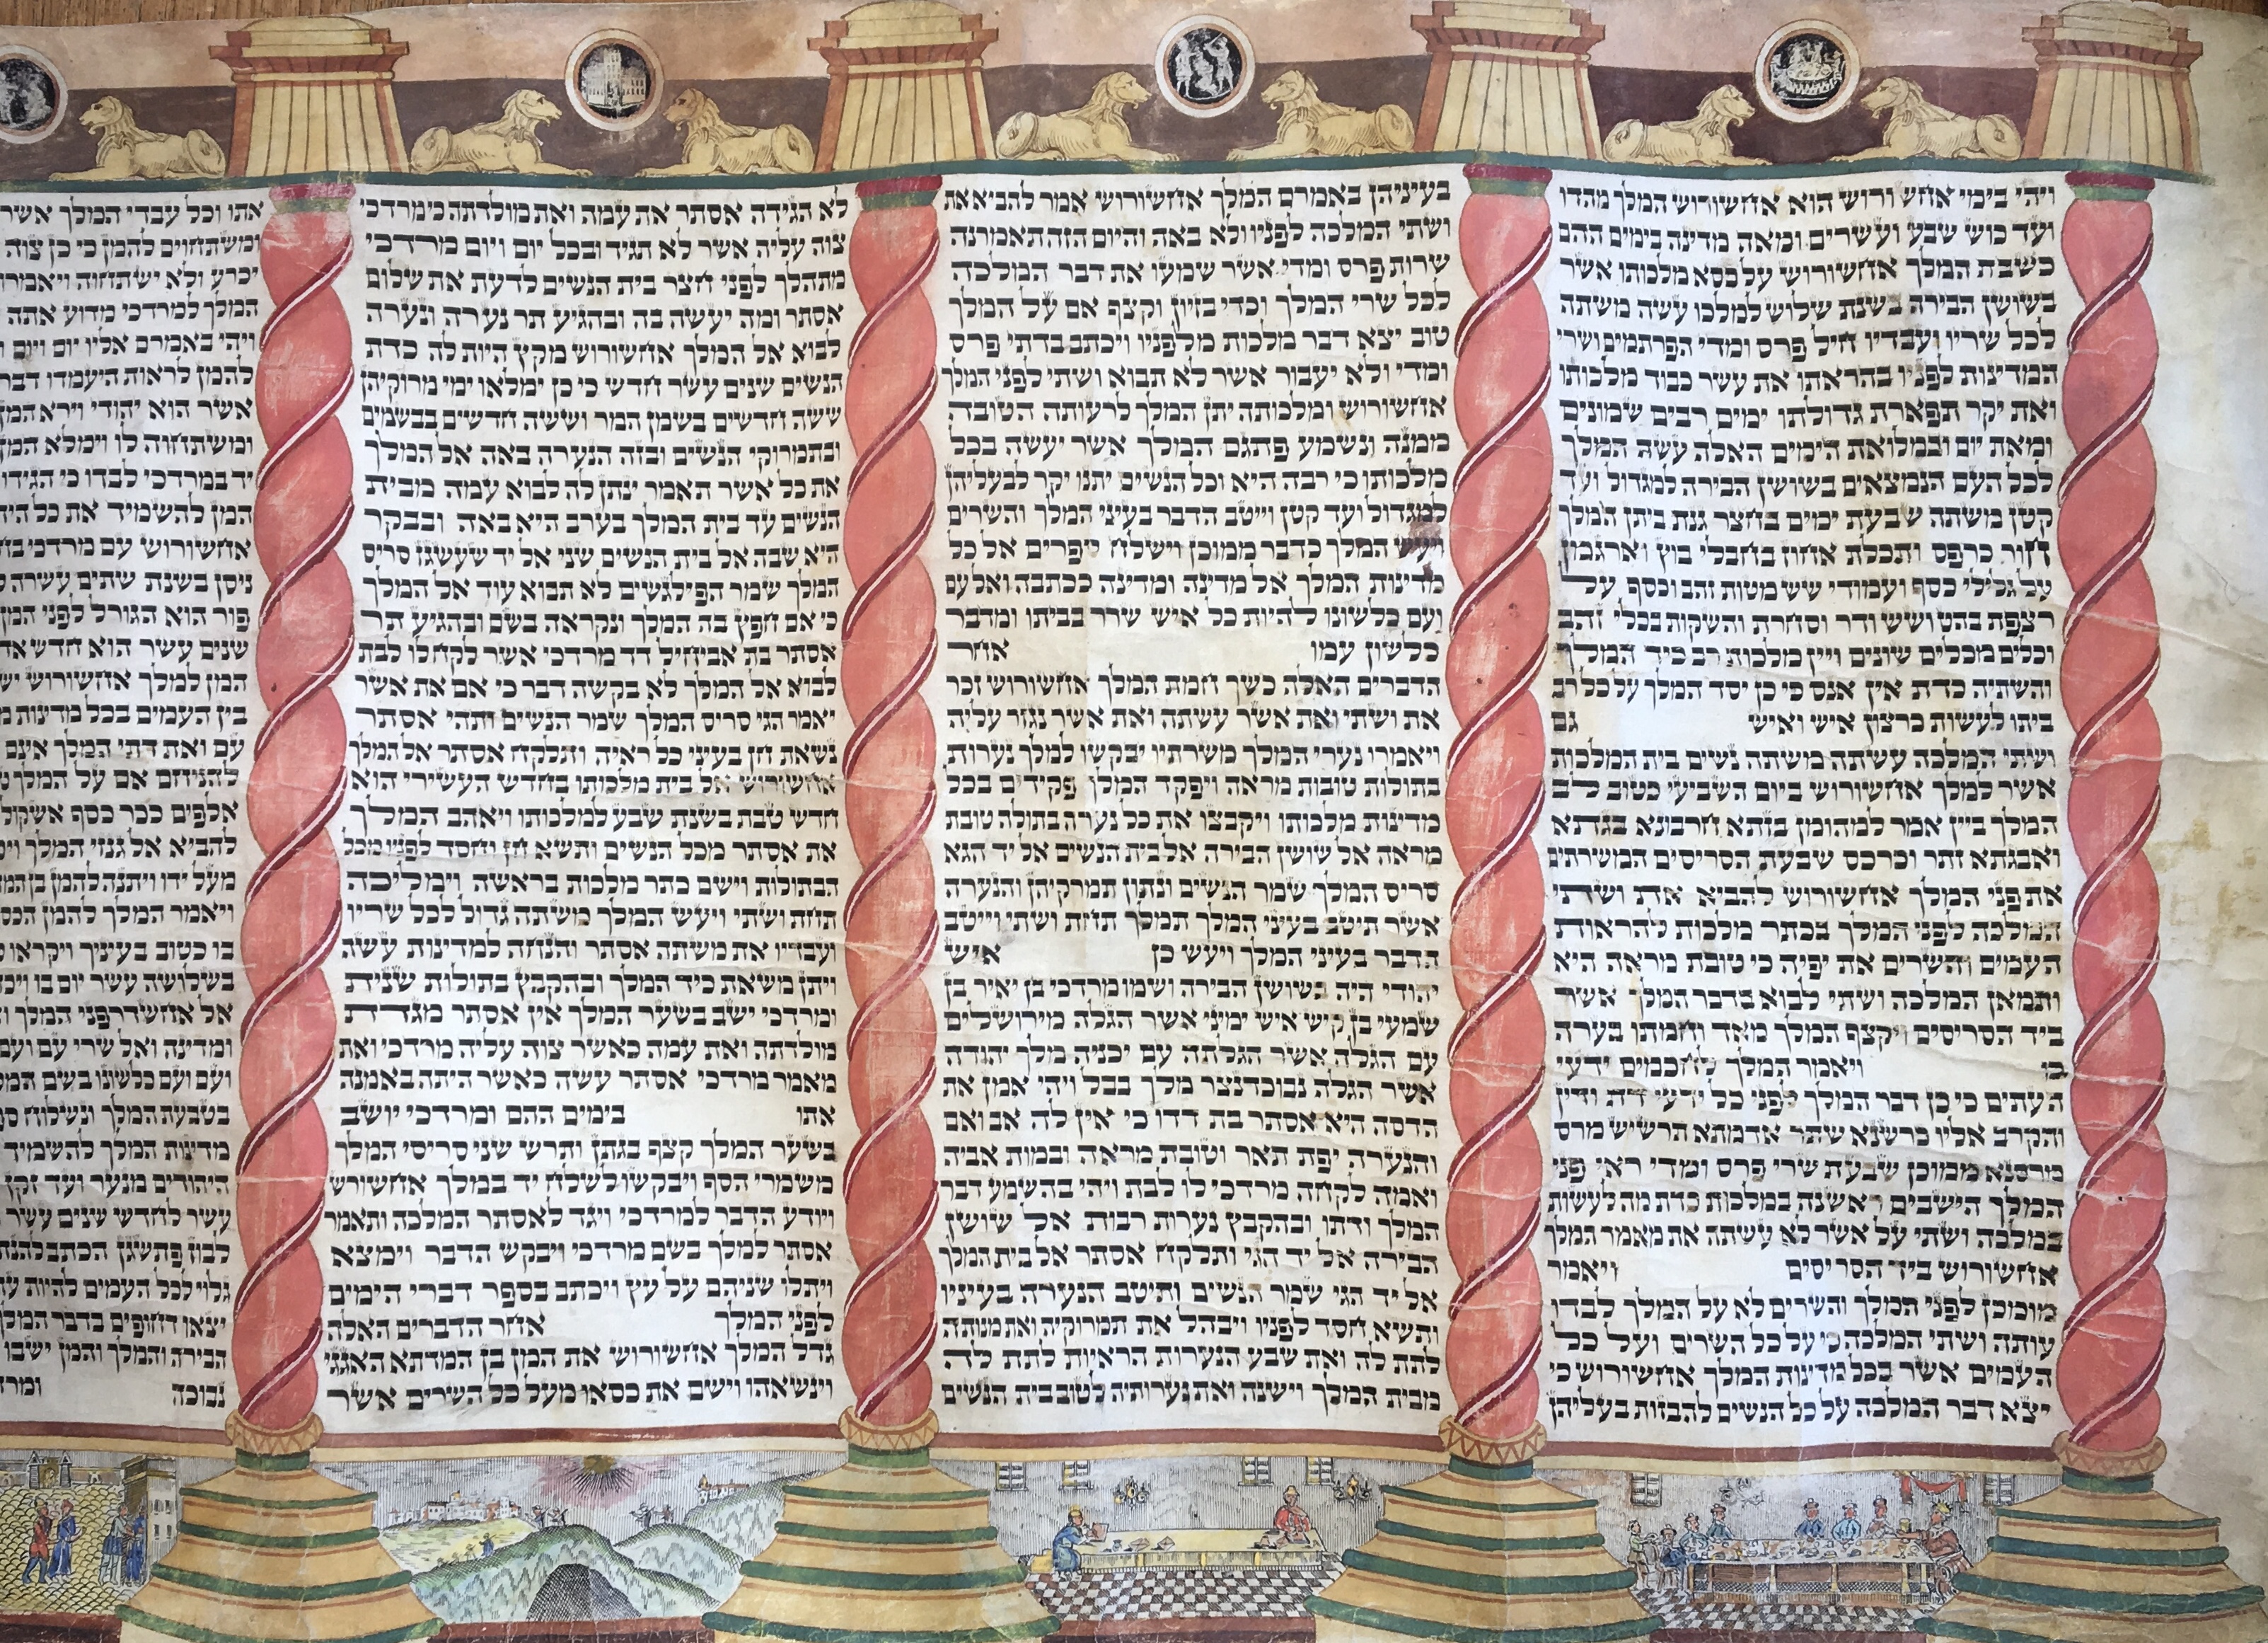 ויהי בימי אחשורוש הוא אחשורוש המלך מהדו
ועד כוש שבע ועשרים ומאה מדינה בימים ההם
כשבת המלך אחשורוש על כסא מלכותו אשר
בשושן הבירה בשנת שלוש למלכו עשה משתה
לכל שריו ועבדיו חיל פרס ומדי הפרתמים ושרי
המדינות לפניו בהראתו את עשר כבוד מלכותו
ואת יקר תפארת גדולתו ימים רבים שמונים
ומאת יום ובמלואת הימים האלה עשה המלך
לכל העם הנמצאים בשושן הבירה למגדול ועד
קטן משתה שבעת ימים בחצר גנת ביתן המלך
חור כרפס ותכלת אחוז בחבלי בוץ וארגמן
על גלילי כסף ועמודי שש מטות זהב וכסף על
רצפת בהט ושש ודר וסחרת והשקות בכלי זהב
וכלים מכלים שונים ויין מלכות רב כיד המלך
והשתיה כדת אין אנס כי כן יסד המלך על כל רב
ביתו לעשות כרצון איש ואיש גם
ושתי המלכה עשתה משתה נשים בית המלכות
אשר למלך אחשורוש ביום השביעי כטוב לב
המלך ביין אמר למהומן בזתא חרבונא בגתא
ואבגתא זתר וכרכס שבעת הסריסים המשרתים
את פני המלך אחשורוש להביא את ושתי
המלכה לפני המלך בכתר מלכות להראות
העמים והשרים את יפיה כי טובת מראה היא
ותמאן המלכה ושתי לבוא בדבר המלך אשר
ביד הסריסים ויקצף המלך מאד וחמתו בערה
בו ויאמר המלך לחכמים ידעי
העתים כי כן דבר המלך לפני כל ידעי דת ודין
והקרב אליו כרשנא שתר אדמתא תרשיש מרס
מרסנא ממוכן שבעת שרי פרס ומדי ראי פני
המלך הישבים ראשנה במלכות כדת מה לעשות
במלכה ושתי על אשר לא עשתה את מאמר המלך
אחשורוש ביד הסריסים ויאמר
מומכן לפני המלך והשרים לא על המלך לבדו
עותה ושתי המלכה כי על כל השרים ועל כל
העמים אשר בכל מדינות המלך אחשורוש כי
יצא דבר המלכה על כל הנשים להבזות בעליהן
בעיניהן באמרם המלך אחשורוש אמר להביא את
ושתי המלכה לפניו ולא באה והיום הזה תאמרנה
שרות פרס ומדי אשר שמעו את דבר המלכה
לכל שרי המלך וכדי בזיון וקצף אם על המלך
טוב יצא דבר מלכות מלפניו ויכתב בדתי פרס
ומדי ולא יעבור אשר לא תבוא ושתי לפני המלך
אחשורוש ומלכותה יתן המלך לרעותה הטובה
ממנה ונשמע פתגם המלך אשר יעשה בכל
מלכותו כי רבה היא וכל הנשים יתנו יקר לבעליהן
למגדול ועד קטן וייטב הדבר בעיני המלך והשרים
ויעש המלך כדבר ממוכן וישלח ספרים אל כל
מדינות המלך אל מדינה ומדינה ככתבה ואל עם
ועם כלשונו להיות כל איש שרר בביתו ומדבר
כלשון עמו אחר
הדברים האלה כשך חמת המלך אחשורוש זכר
את ושתי ואת אשר עשתה ואת אשר נגזר עליה
ויאמרו נערי המלך משרתיו יבקשו למלך נערות
בתולות טובות מראה ויפקד המלך פקידים בכל
מדינות מלכותו ויקבצו את כל נערה בתולה טובת
מראה אל שושן הבירה אל בית הנשים אל יד הגא
סריס המלך שמר הנשים ונתון תמרקיהן והנערה
אשר תיטב בעיני המלך תמלך תחת ושתי וייטב
הדבר בעיני המלך ויעש כן איש
יהודי היה בשושן הבירה ושמו מרדכי בן יאיר בן
שמעי בן קיש איש ימיני אשר הגלה מירושלים
עם הגלה אשר הגלתה עם יכניה מלך יהודה
אשר הגלה נבוכדנצר מלך בבל ויהי אמן את
הדסה היא אסתר בת דדו כי אין לה אב ואם
והנערה יפת תאר וטובת מראה ובמות אביה
ואמה לקחה מרדכי לו לבת ויהי בהשמע דבר
המלך ודתו ובהקבץ נערות רבות אל שושן
הבירה אל יד הגי ותלקח אסתר אל בית המלך
אל יד הגי שמר הנשים ותיטב הנערה בעיניו
ותשא חסד לפניו ויבהל את תמרוקיה ואת מנותה
לתת לה ואת שבע הנערות הראיות לתת לה
מבית המלך וישנה ואת נערותיה לטוב בית הנשים
לא הגידה אסתר את עמה ואת מולדתה כי מרדכי
צוה עליה אשר לא תגיד ובכל יום ויום מרדכי
מתהלך לפני חצר בית הנשים לדעת את שלום
אסתר ומה יעשה בה ובהגיע תר נערה ונערה
לבוא אל המלך אחשורוש מקץ היות לה כדת
הנשים שנים עשר חדש כי כן ימלאו ימי מרוקיהן
ששה חדשים בשמן המר וששה חדשים בבשמים
ובתמרוקי הנשים ובזה הנערה באה אל המלך
את כל אשר תאמר ינתן לה לבוא עמה מבית
הנשים עד בית המלך בערב היא באה ובבקר
היא שבה אל בית הנשים שני אל יד שעשגז סריס
המלך שמר הפילגשים לא תבוא עוד אל המלך
כי אם חפץ בה המלך ונקראה בשם ובהגיע תר
אסתר בת אביחיל דד מרדכי אשר לקח לו לבת
לבוא אל המלך לא בקשה דבר כי אם את אשר
יאמר הגי סריס המלך שמר הנשים ותהי אסתר
נשאת חן בעיני כל ראיה ותלקח אסתר אל המלך
אחשורוש אל בית מלכותו בחדש העשירי הוא
חדש טבת בשנת שבע למלכותו ויאהב המלך
את אסתר מכל הנשים ותשא חן וחסד לפניו מכל
הבתולות וישם כתר מלכות בראשה וימליכה
תחת ושתי ויעש המלך משתה גדול לכל שריו
ועבדיו את משתה אסתר והנחה למדינות עשה
ויתן משאת כיד המלך ובהקבץ בתולות שנית
ומרדכי ישב בשער המלך אין אסתר מגדת
מולדתה ואת עמה כאשר צוה עליה מרדכי ואת
מאמר מרדכי אסתר עשה כאשר היתה באמנה
אתו בימים ההם ומרדכי יושב
בשער המלך קצף בגתן ותרש שני סריסי המלך
משמרי הסף ויבקשו לשלח יד במלך אחשורש
ויודע הדבר למרדכי ויגד לאסתר המלכה ותאמר
אסתר למלך בשם מרדכי ויבקש הדבר וימצא
ויתלו שניהם על עץ ויכתב בספר דברי הימים
לפני המלך אחר הדברים האלה
גדל המלך אחשורוש את המן בן המדתא האגגי
וינשאהו וישם את כסאו מעל כל השרים אשר
אתו וכל עבדי המלך אשר
ומשתחוים להמן כי כן צוה
יכרע ולא ישתחוה ויאמרו
המלך למרדכי מדוע אתה
ויהי באמרם אליו יום ויום
להמן לראות היעמדו דברי
אשר הוא יהודי וירא המן
ומשתחוה לו וימלא המן
יד במרדכי לבדו כי הגידו
המן להשמיד את כל היה
אחשורוש עם מרדכי בח
ניסן בשנת שתים עשרה ל
פור הוא הגורל לפני המן
שנים עשר הוא חדש אד
המן למלך אחשורוש יש
בין העמים בכל מדינות מ
עם ואת דתי המלך אינם
להניחם אם על המלך ט
אלפים ככר כסף אשקול
להביא אל גנזי המלך וי
מעל ידו ויתנה להמן בן המד
ויאמר המלך להמן הכס
בו כטוב בעיניך ויקראו
בשלושה עשר יום בו ויכת
אל אחשדרפני המלך וא
ומדינה ואל שרי עם ועם
ועם ועם כלשונו בשם המל
בטבעת המלך ונשלוח ספ
מדינות המלך להשמיד
היהודים מנער ועד זקן
עשר לחדש שנים עשר
לבוז פתשגן הכתב להנת
גלוי לכל העמים להיות ע
יצאו דחופים בדבר המלך
הבירה והמלך והמן ישבו
נבוכה ומרד